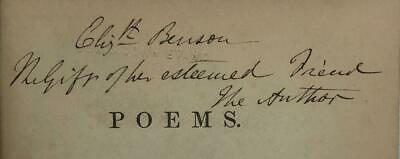 Elizth Benson
The Gift of her esteemed Friend
The Author
POEMS.